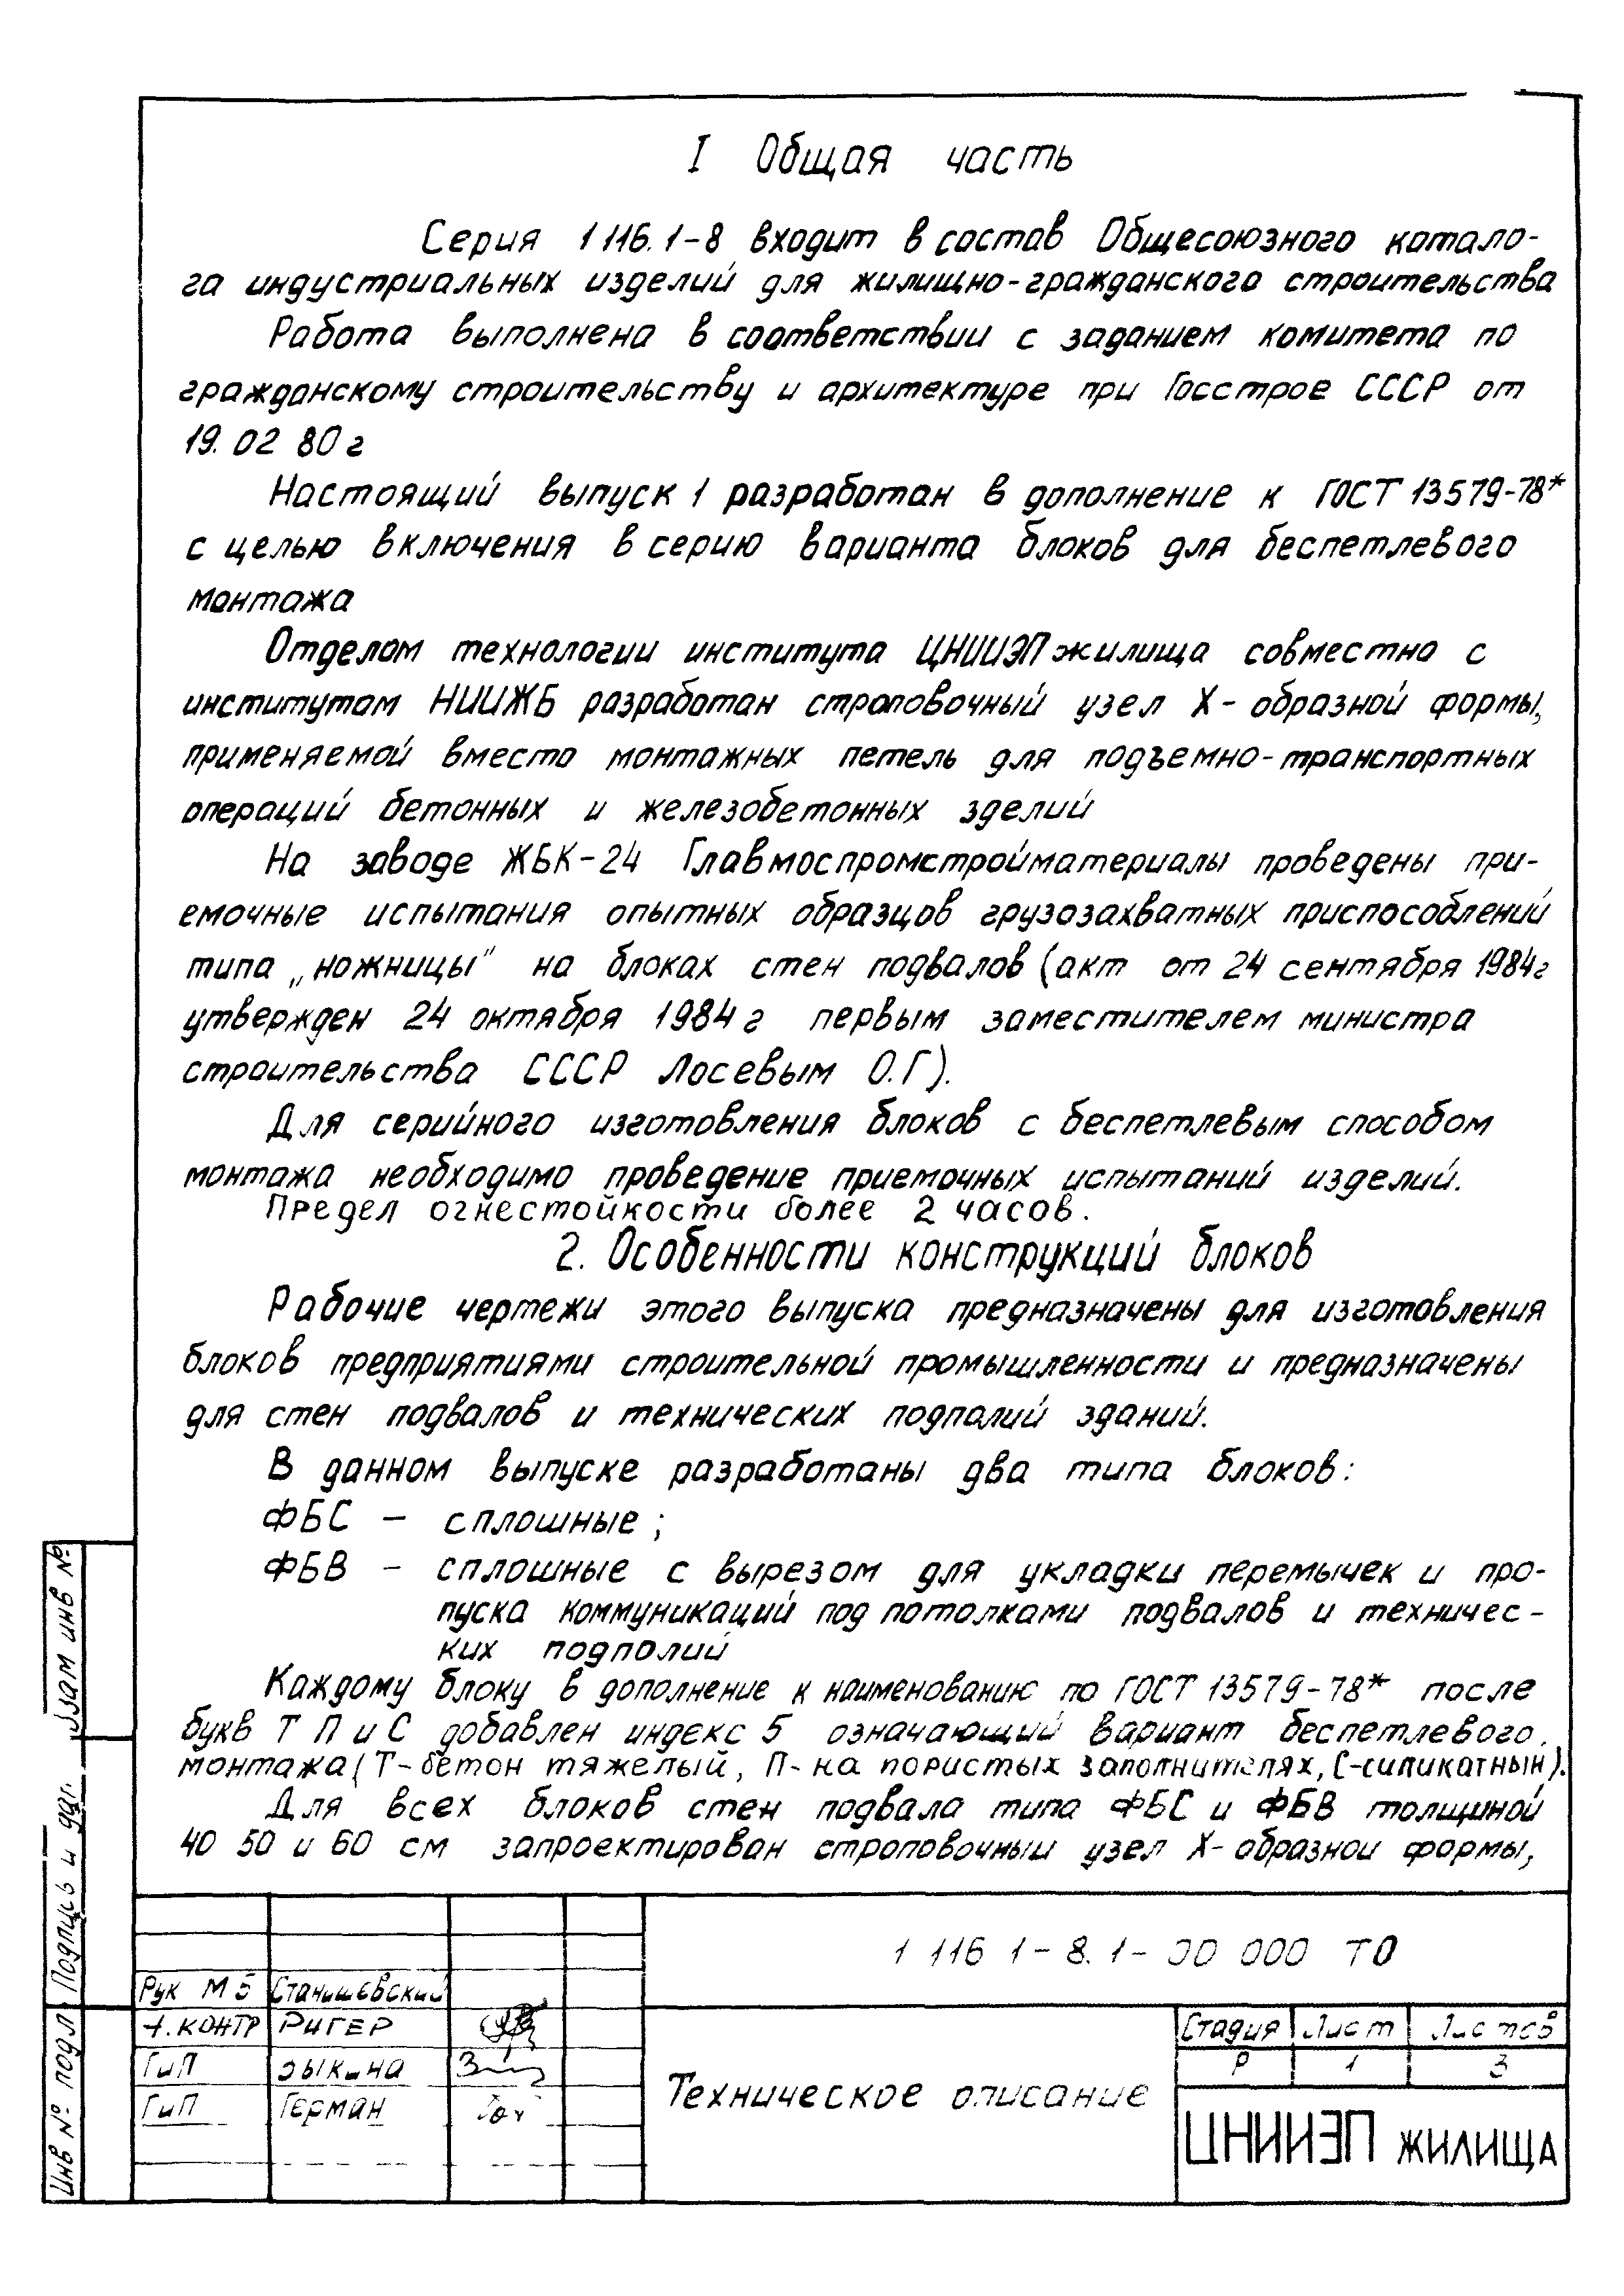 I Общая часть
Серия 1 116. 1-8 входит в состав Общесоюзного катало-
га индустриальных изделий для жилищно-гражданского строительства
Работа выполнена в соответствии с заданием комитета по
гражданскому строительству и архитектуре при Госстрое СССР от
19. 02 80 г
Настоящий выпуск 1 разработан в дополнение к ГОСТ 13579-78*
с целью включения в серию варианта блоков для беспетлевого
монтажа
Отделом технологии института ЦНИИЭП жилища совместно с
институтом НИИЖБ разработан строповочный узел Х-образной формы,
применяемой вместо монтажных петель для подъемно-транспортных
операций бетонных и железобетонных зделий
На заводе ЖБК-24 Главмоспромстройматериалы проведены при-
емочные испытания опытных образцов грузозахватных приспособлений
типа „ножницы" на блоках стен подвалов (акт от 24 сентября 1984г
утвержден 24 октября 1984 г первым заместителем министра
строительства СССР Лосевым О.Г).
Для серийного изготовления блоков с беспетлевым способом
монтажа необходимо проведение приемочных испытаний изделий.
Предел огнестойкости более 2 часов.
2. Особенности конструкций блоков
Рабочие чертежи этого выпуска предназначены для изготовления
блоков предприятиями строительной промышленности и предназначены
для стен подвалов и технических подполий зданий.
В данном выпуске разработаны два типа блоков:
ФБС - сплошные;
ФБВ - сплошные с вырезом для укладки перемычек и про-
пуска коммуникаций под потолками подвалов и техничес-
ких подполий
Каждому блоку в дополнение к наименованию по ГОСТ 13579-78* после
букв Т П и С добавлен индекс 5 означающий вариант беспетлевого
монтажа (Т-бетон тяжелый, П-на пористых заполнителях, С-силикатный).
Для всех блоков стен подвала типа ФБС и ФБВ толщиной
40 50 и 60 см запроектирован строповочный узел Х-образной формы,
1 116 1-8. 1- 00 000 ТО
Рук М 5 Станишевский
Н. КОНТР РИГЕР
ГиП Зыкина
ГиП Герман
Техническое описание
Стадия Лист Листов
Р 1 3
ЦНИИЭП ЖИЛИЩА
Взам инв №
Подпись и дат.
Инв № подл